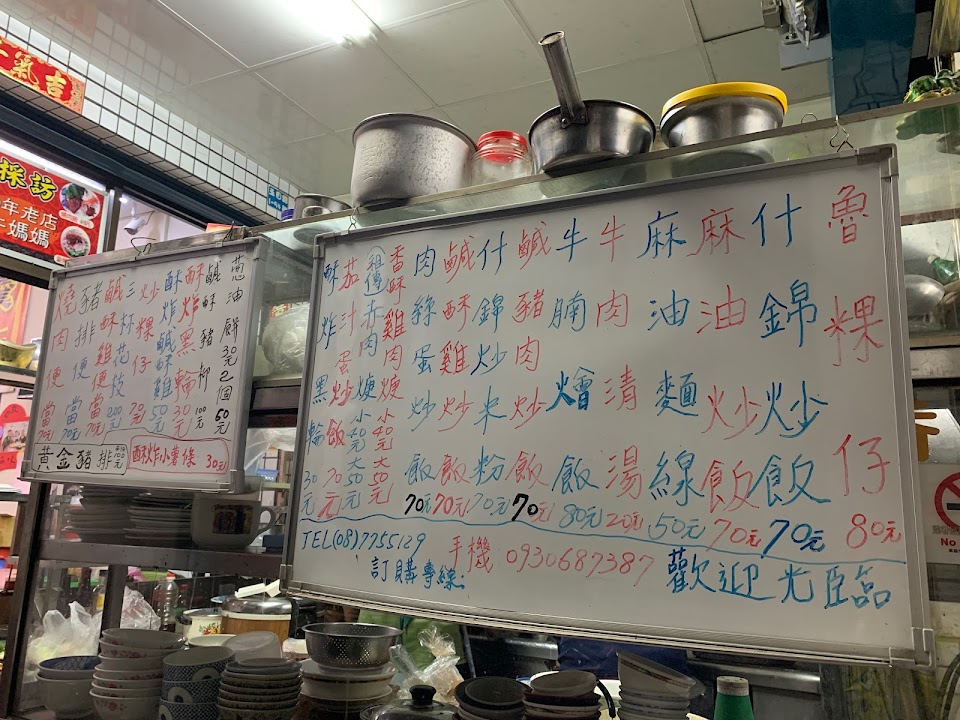 魯粿仔 80元
什錦炒飯 70元
麻油炒飯 70元
麻油麵線 50元
牛肉清湯 20元
牛腩燴飯 80元
鹹豬肉炒飯 70元
什錦炒米粉 70元
鹹酥雞炒飯 70元
肉絲蛋炒飯 70元
香酥雞肉焿 小40元 大50元
祖傳赤肉焿 小40元 大50元
茄汁蛋炒飯 70元
酥炸黑輪 30元
TEL(08)7755129 手機 0930687387
訂購專線:
歡迎光臨
蔥油餅 30元 2個 50元
鹹酥豬柳 100元
酥炸黑輪 30元
酥炸鹹酥雞 50元
炒粿仔 70元
三杯花枝 200元
鹹酥雞便當 70元
豬排便當 70元
燒肉便當 70元
黃金豬排 100元
酥炸小薯條 30元
氣吉
採訪
年老店
媽媽
No